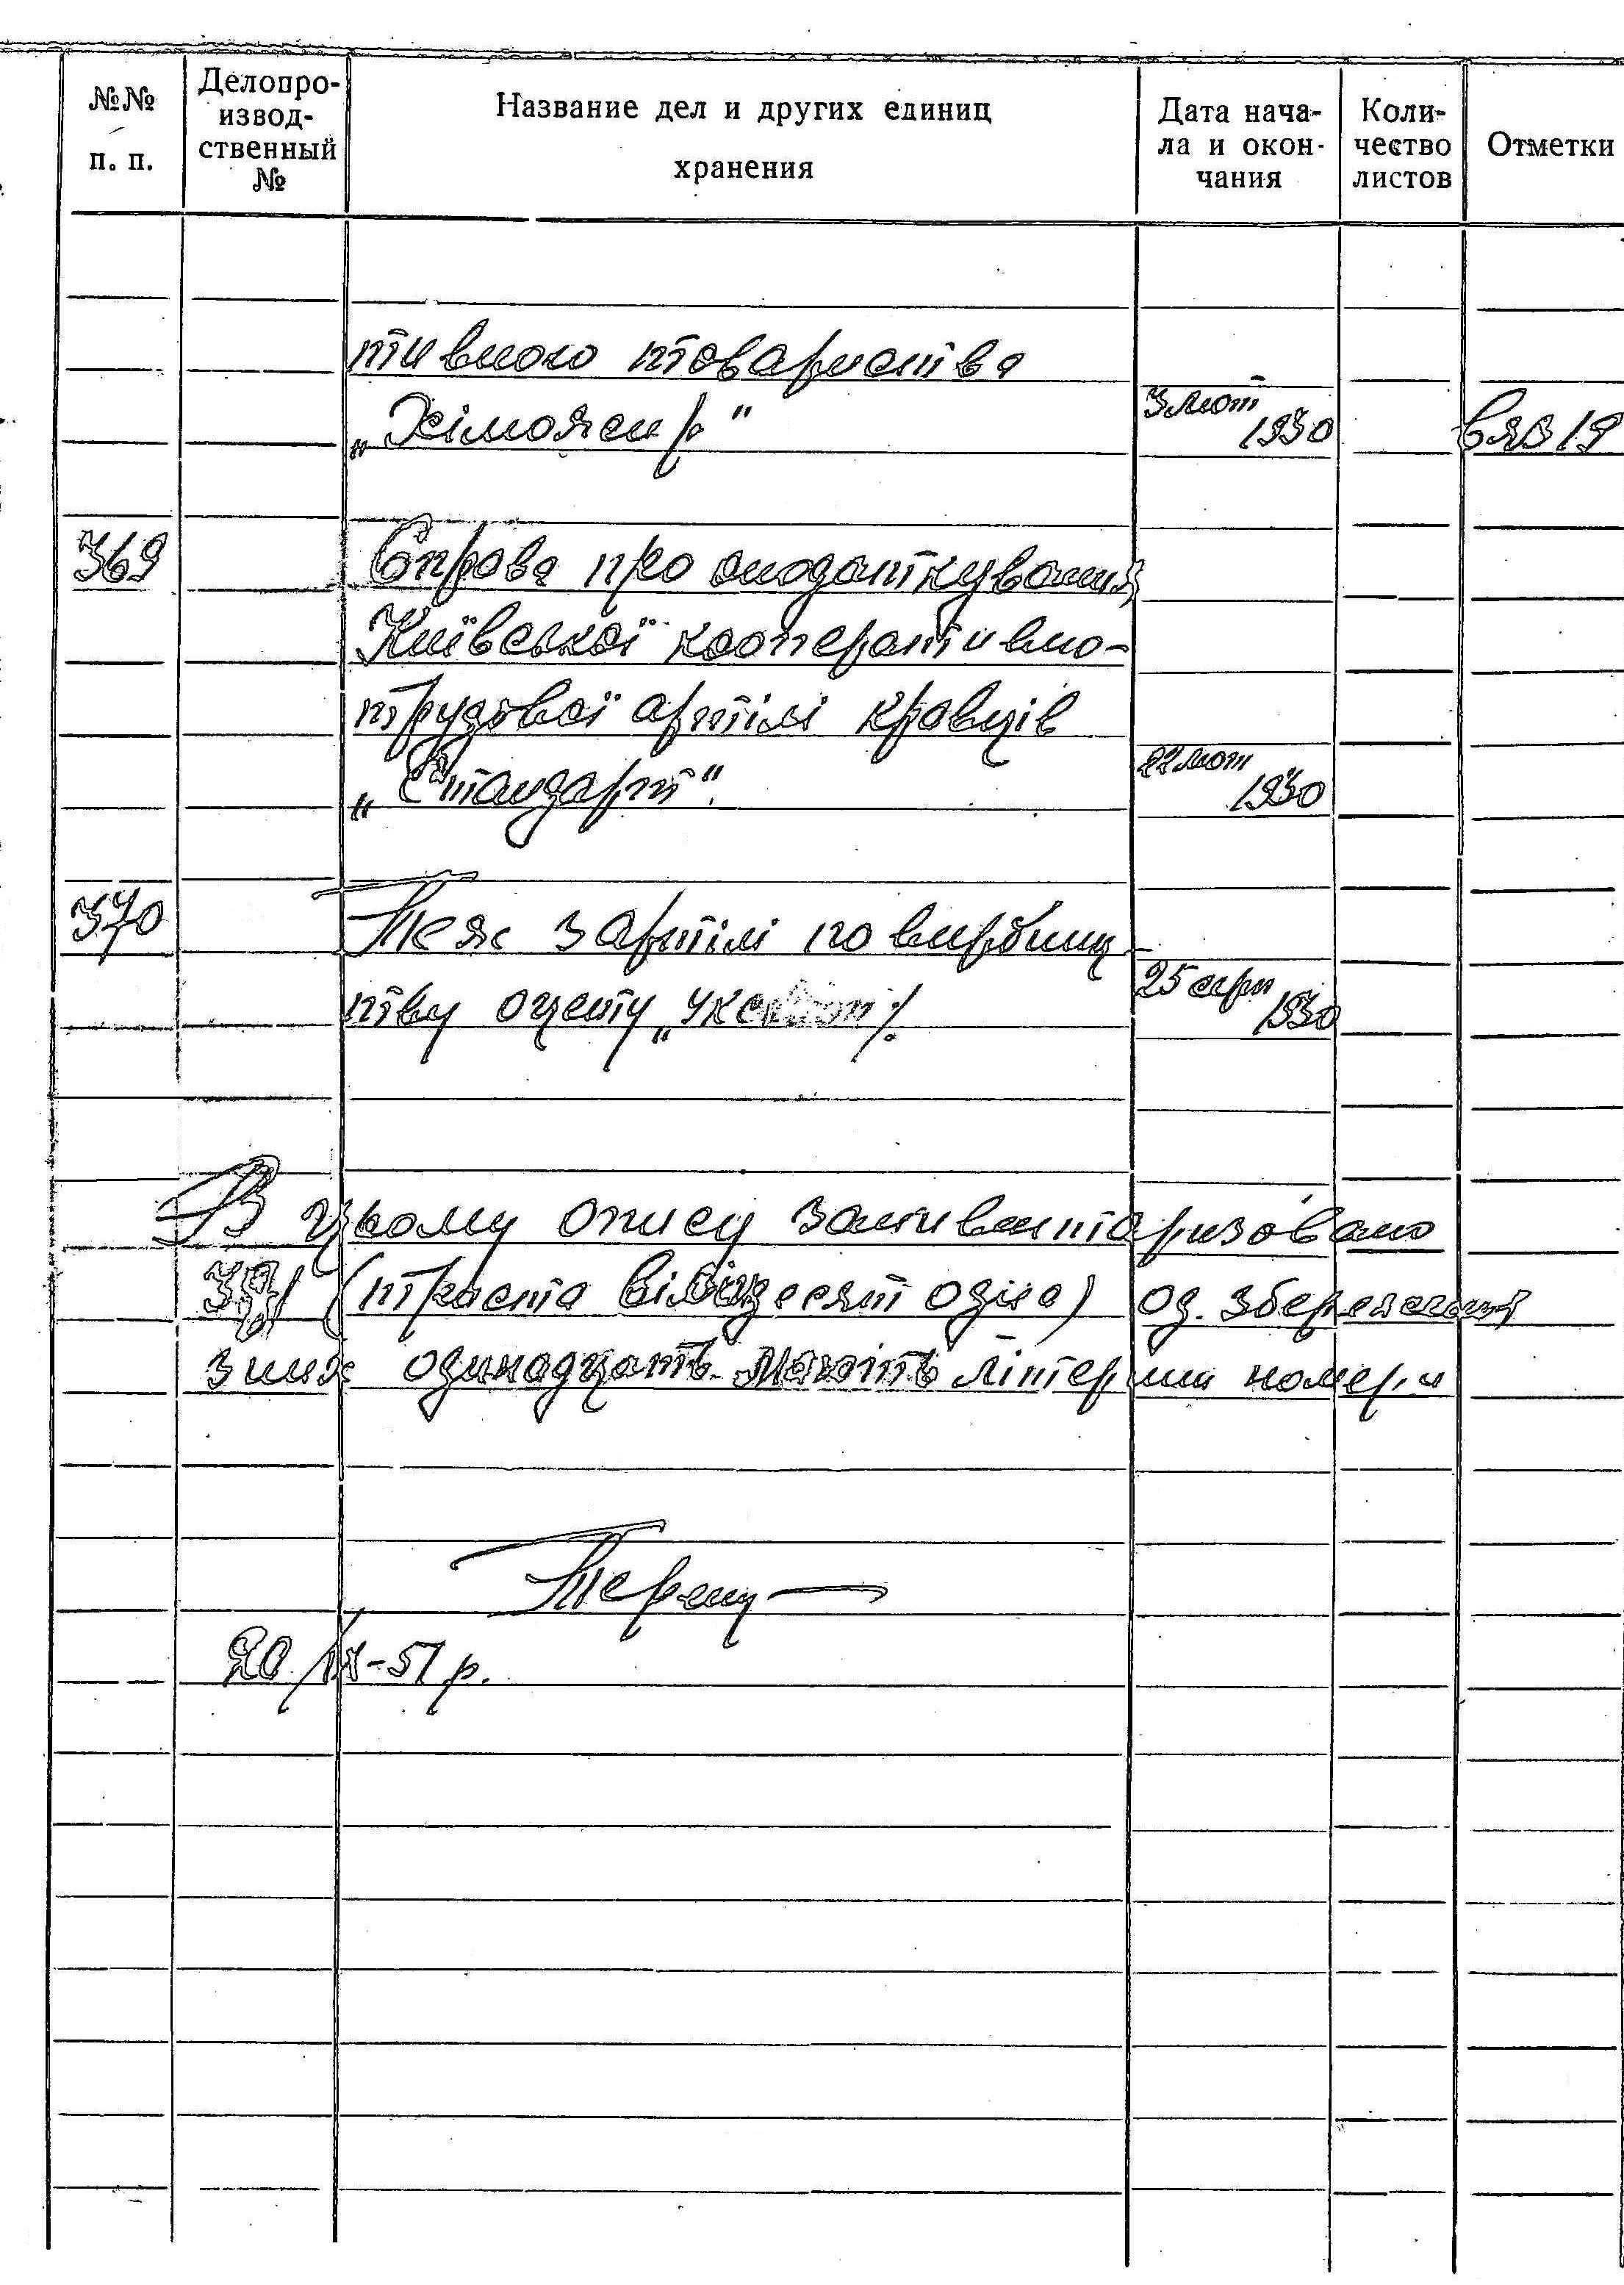 №№ п. п.
Делопро-
извод-
ственный
№
Название дел и других единиц
хранения
Дата нача-
ла и окон-
чания
Коли-
чество
листов
Отметки
тивного товариства
3 лют
1930
вяз 19
369
Справа про оподаткування
Київської кооперативно-
трудової артілі кравців
„Стандарт".
22 лют
1930
370
Теж з артілі по вироблиц
тву оцету
25 серп
1930
В цьому опису заінвентаризовано
(триста вісімдесят одна) од. збереження
з них одинадцять мають літерни номери
20/IX-51 р.